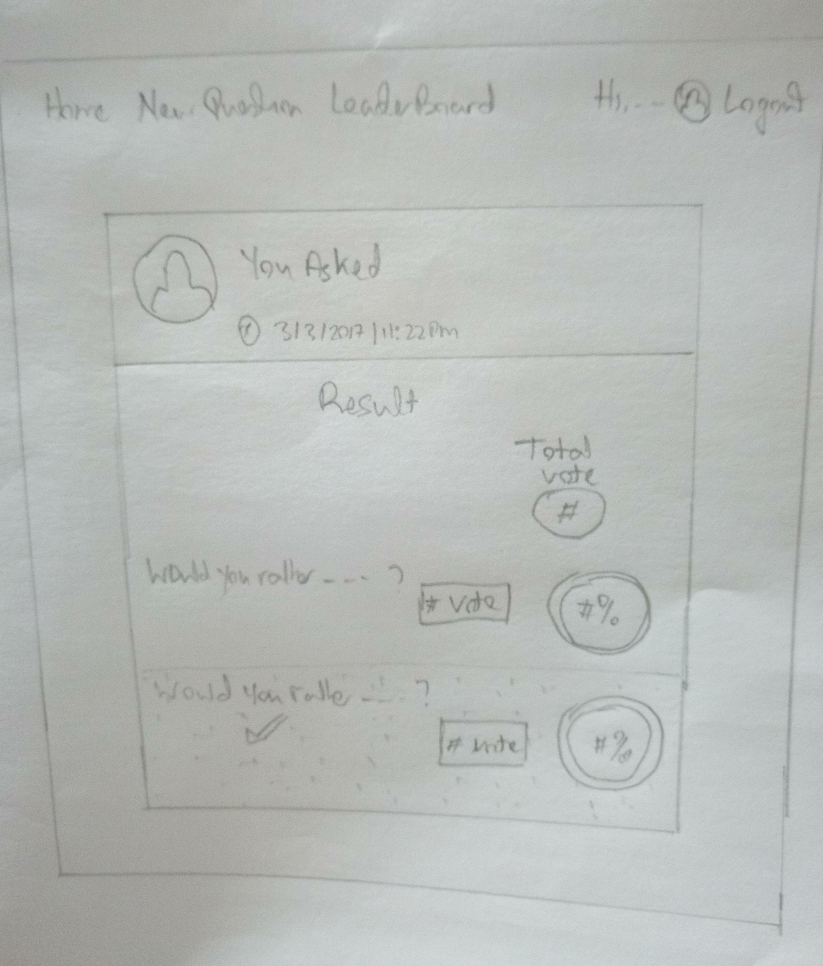 Home New Question LeaderBoard Hi, --- Logout
You Asked
3/3/2017 | 11:22 Pm
Result
Total
vote
#
Would you rather ---- ?
# vote #%
Would you rather ---- ?
# vote #%